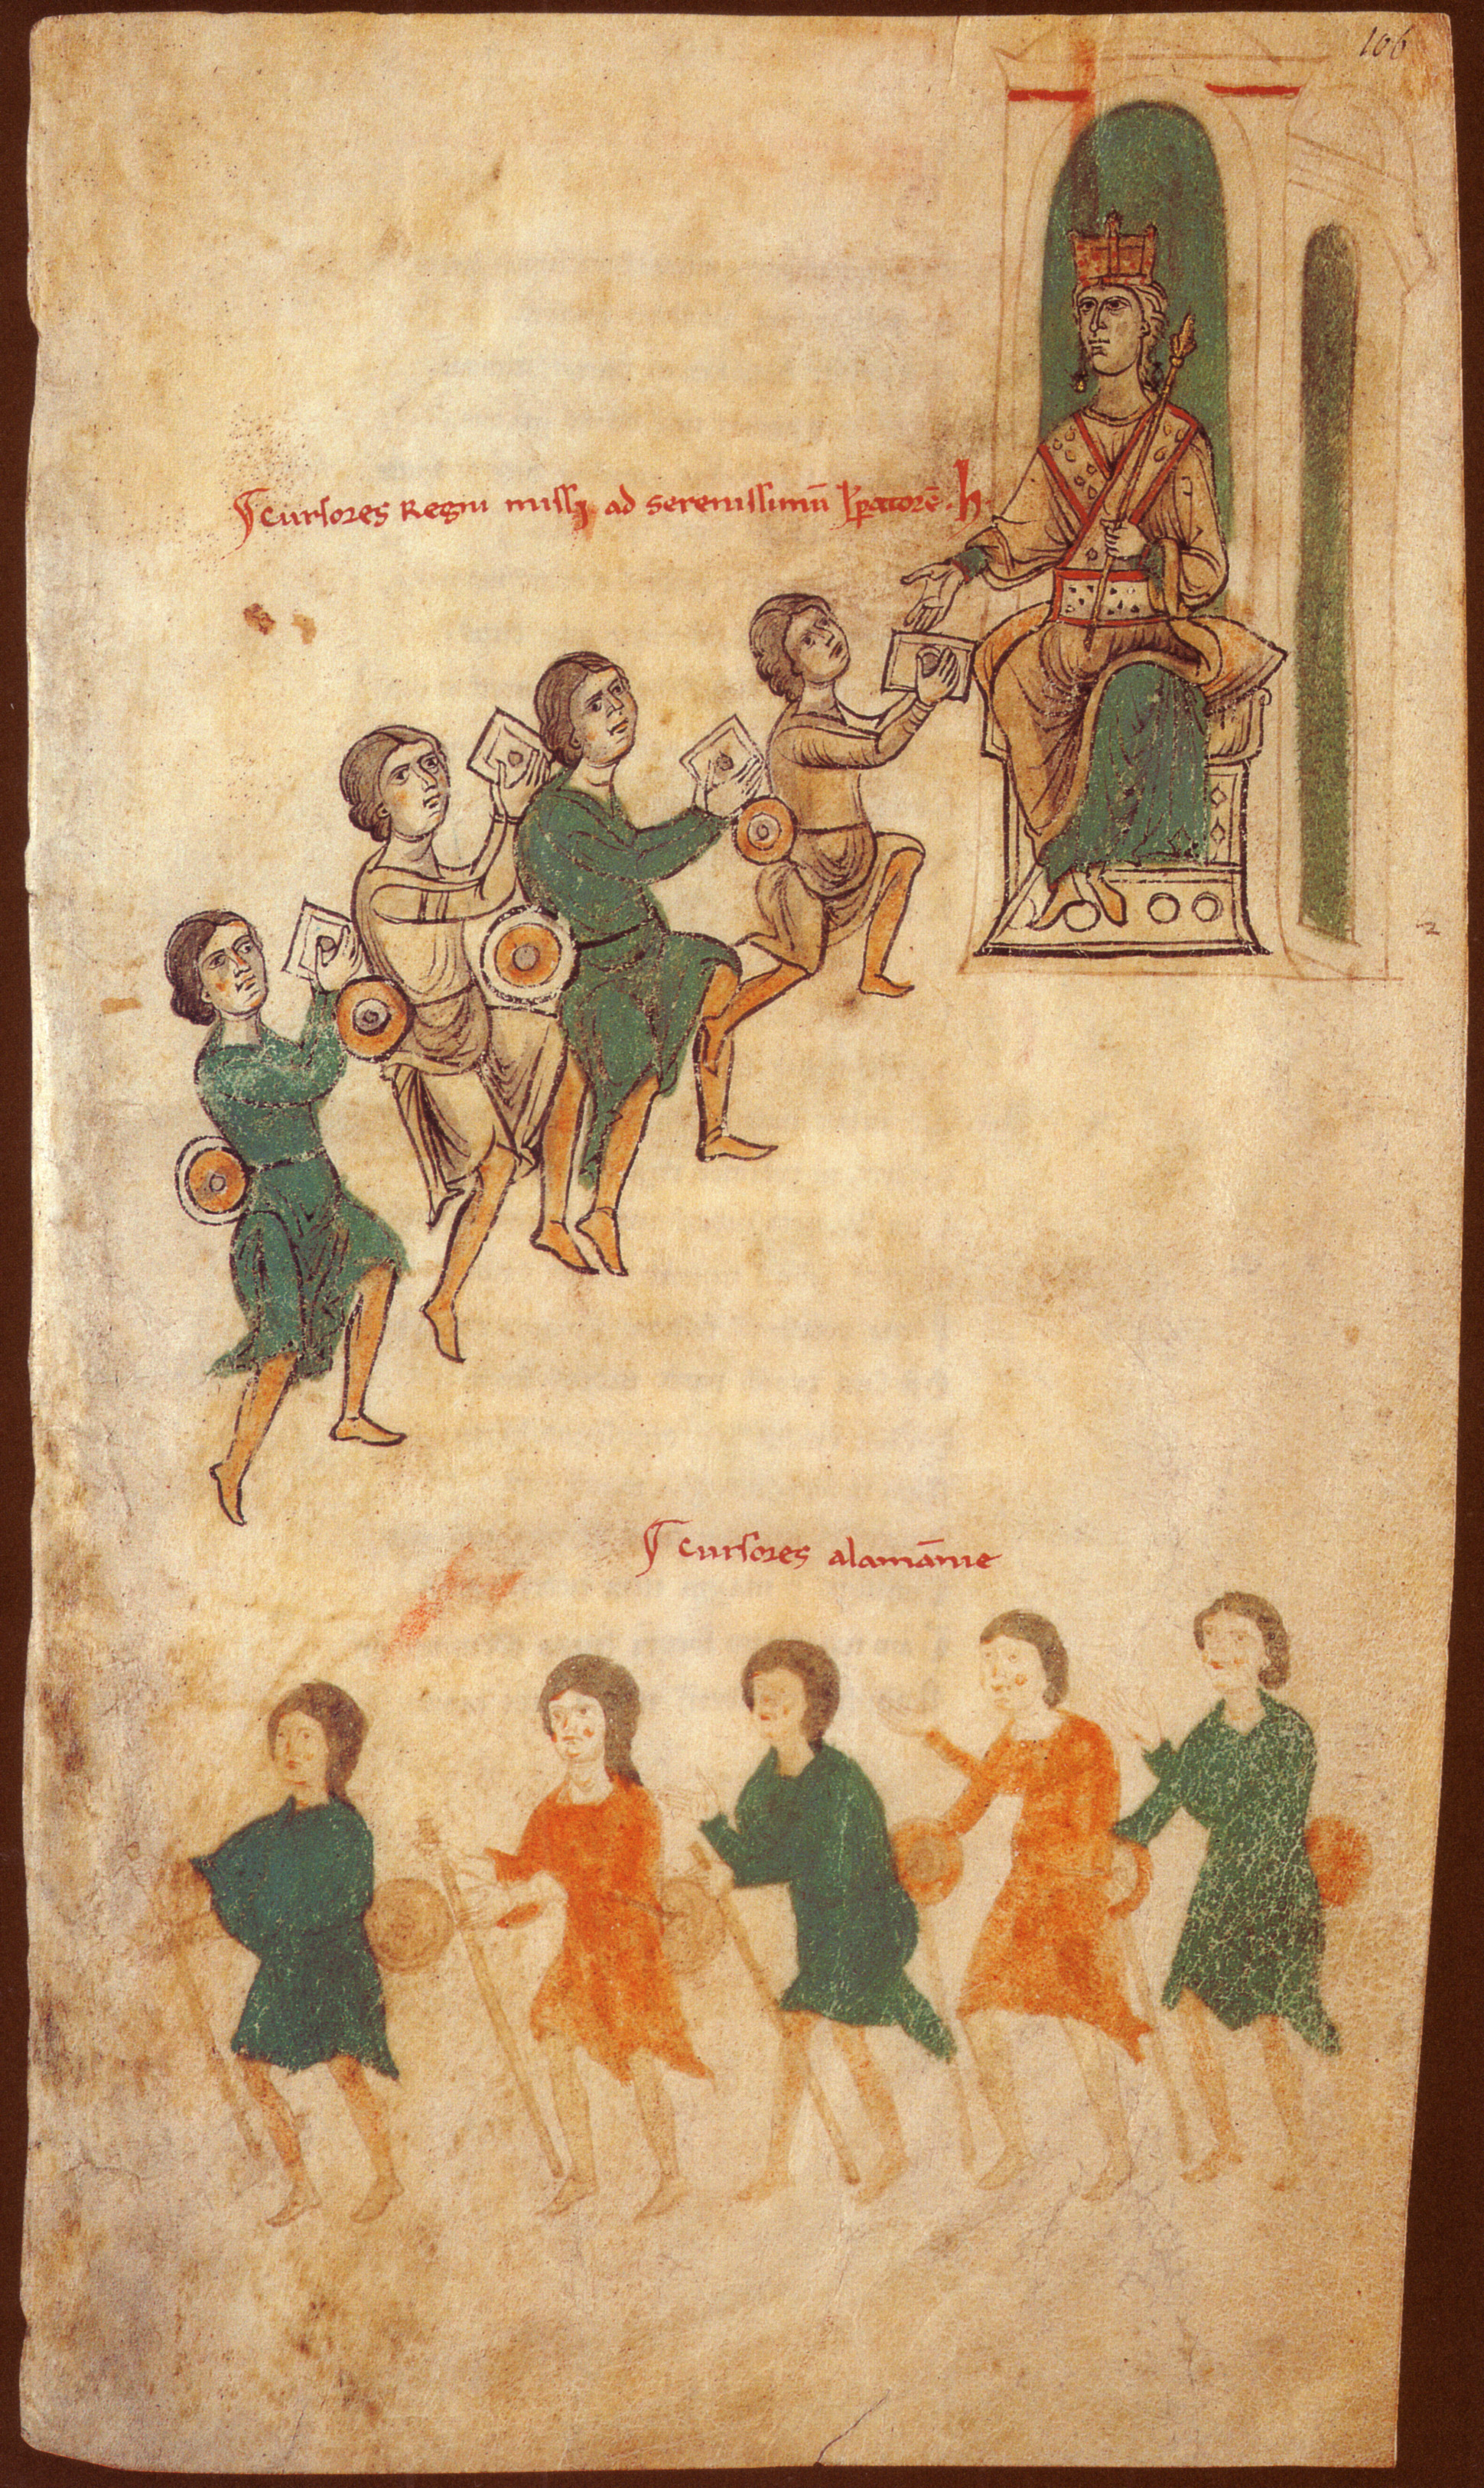 106
¶ cursores Regni missi ad serenissimū Īperatorē · h ·
¶ cursores alamānie